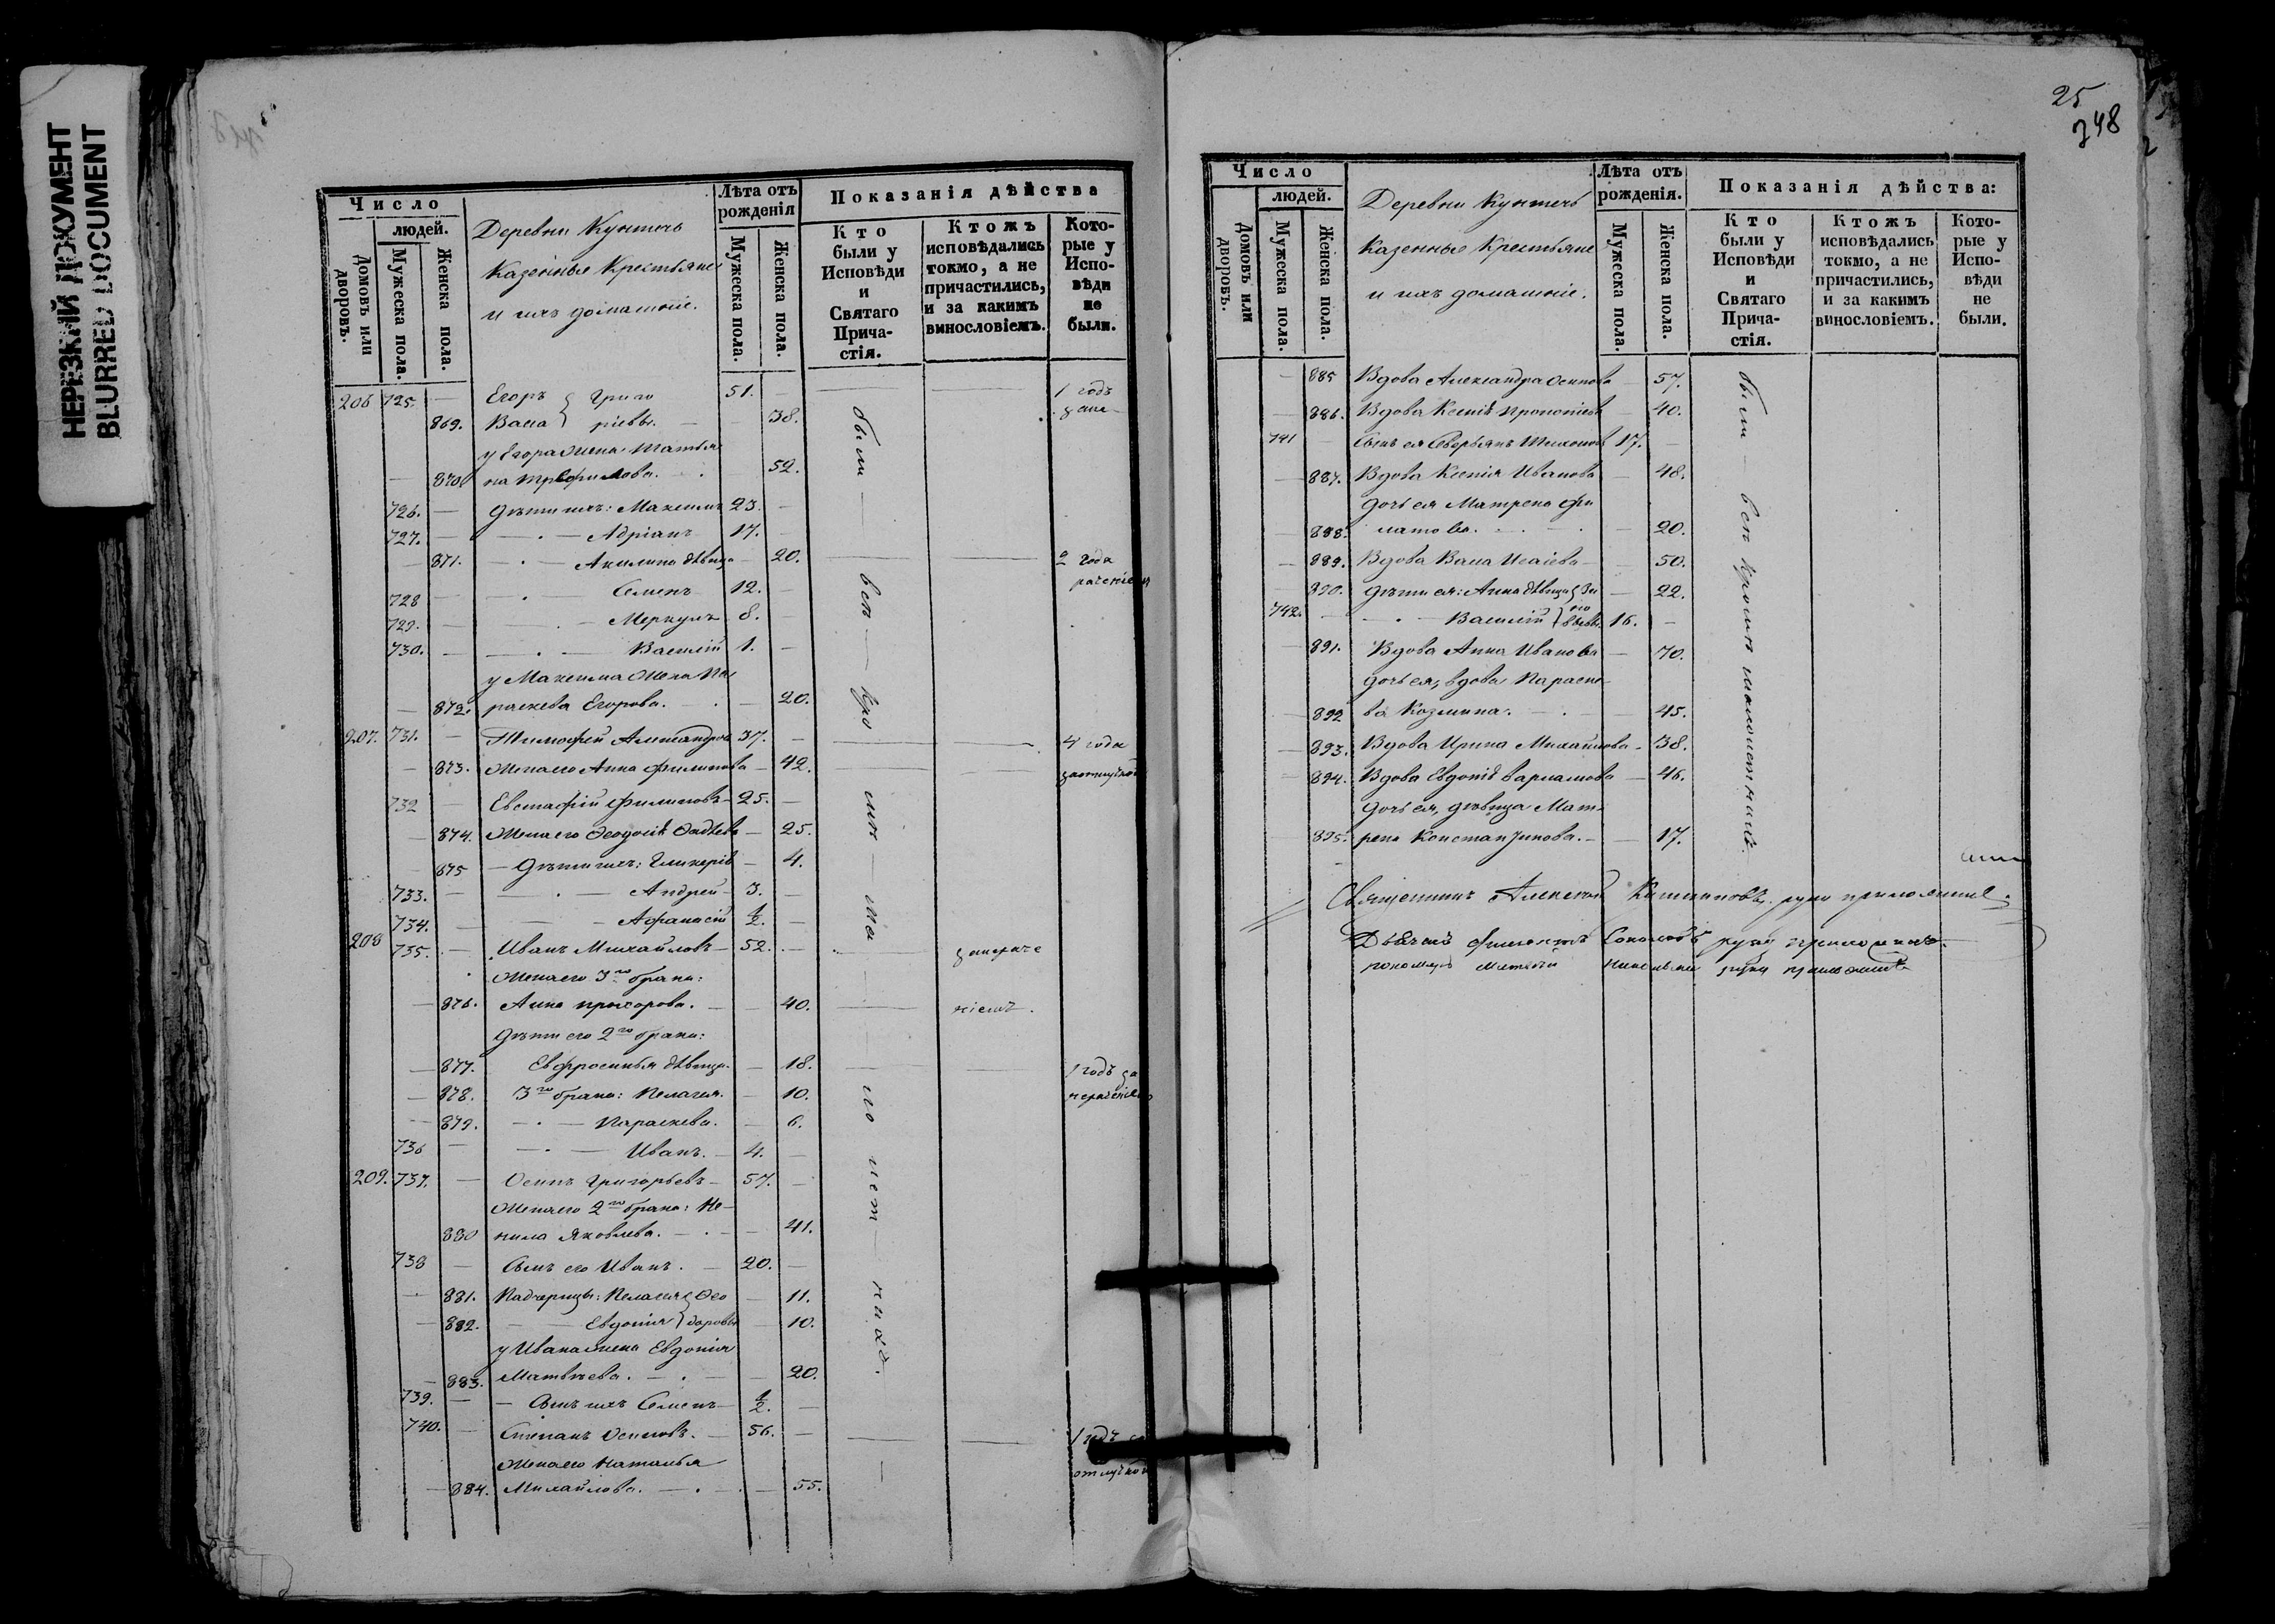 НЕРЕЗКИЙ ДОКУМЕНТ
BLURRED DOCUMENT
Число
людей.
Домовъ или дворовъ.
Мужеска пола.
Женска пола.
Деревни
Казенные Крестьяне
и ихъ домашніе.
Лѣта отъ рожденія
Мужеска пола.
Женска пола.
Показанія дѣйства
Кто были у Исповѣди и Святаго Причастія.
Ктожъ исповѣдались токмо, а не причастились, и за какимъ винословіемъ.
Которые у Исповѣди не были.
206 725. — Егоръ } Григо 51. — 1 годъ
869. Васса } ріевы. — 38.
у Егора жена Татья
870. на Трофимова. 52.
726. — дѣти ихъ: Максимъ 23. —
727. — Адріанъ 17. —
— 871. Акилина дѣвица — 20. 2 года
728 — Семенъ 12. —
729. — Меркулъ 8. —
730. — Василій 1. —
у Максима жена Па
— 872. раскева Егорова. — 20.
207. 731. — Тимофей Александров 37. — 4 года
— 873. Жена его Анна Филипова — 42.
732 — Евстафій Филиповъ 25. —
— 874. Жена его Феодосія — 25.
— 875 — Дѣти ихъ: Гликерія — 4.
733. — Андрей 3. —
734. — Афанасій ½. —
208 735. — Иванъ Михайловъ 52. —
Жена его 3го брака:
— 876. Анна Прохорова. — 40.
Дѣти его 2го брака:
— 877. Евфросинья дѣвица. — 18. 1 годъ за
— 878. 3го брака: Пелагея. — 10.
— 879. Параскева. — 6.
736 — Иванъ. 4. —
209. 737. — Осипъ Григорьевъ 57. —
Жена его 2го брака: Не-
880 нила Яковлева. — 41.
738 — Сынъ его Иванъ. 20. —
881. Падчерицы: Пелагея } Фео — 11.
— 882. Евдокія } доровы — 10.
у Ивана жена Евдокія
— 883. Матвѣева. — 20.
739. — Сынъ ихъ Семенъ ½. —
740. — Степанъ Осиповъ. 56. — 1 годъ
Жена его Наталья отлучкой
— 884. Михайлова. — 55.
были — всѣ — кро — мѣ — ма — ло — лѣт — нихъ.
25
248
Число
людей.
Домовъ или дворовъ.
Мужеска пола.
Женска пола.
Деревни
Казенные Крестьяне
и ихъ домашніе.
Лѣта отъ рожденія.
Мужеска пола.
Женска пола.
Показанія дѣйства:
Кто были у Исповѣди и Святаго Причастія.
Ктожъ исповѣдались токмо, а не причастились, и за какимъ винословіемъ.
Которые у Исповѣди не были.
— 885 Вдова Александра Осипова — 57.
— 886. Вдова Ксенія — 40.
741 — Сынъ ея Северьянъ 17. —
— 887. Вдова Ксенія Иванова — 48.
Дочь ея Матрена Фи
— 888. латова. — 20.
— 889. Вдова Васса Исаіева — 50.
890. Дѣти ея: Анна дѣвица — 22.
742. — Василій 16. —
— 891. Вдова Анна Иванова — 70.
Дочь ея, вдова Параске
— 892 ва Козмина. — 45.
— 893. Вдова Ирина Михайлова — 38.
— 894. Вдова Евдокія Варламова — 46.
Дочь ея, дѣвица Мат-
— 895. рена Констан — 17.
были — всѣ кромѣ малолѣтнихъ.
Священникъ Алексей руку приложилъ.
Дьячекъ Соколовъ руку приложилъ
руку приложилъ